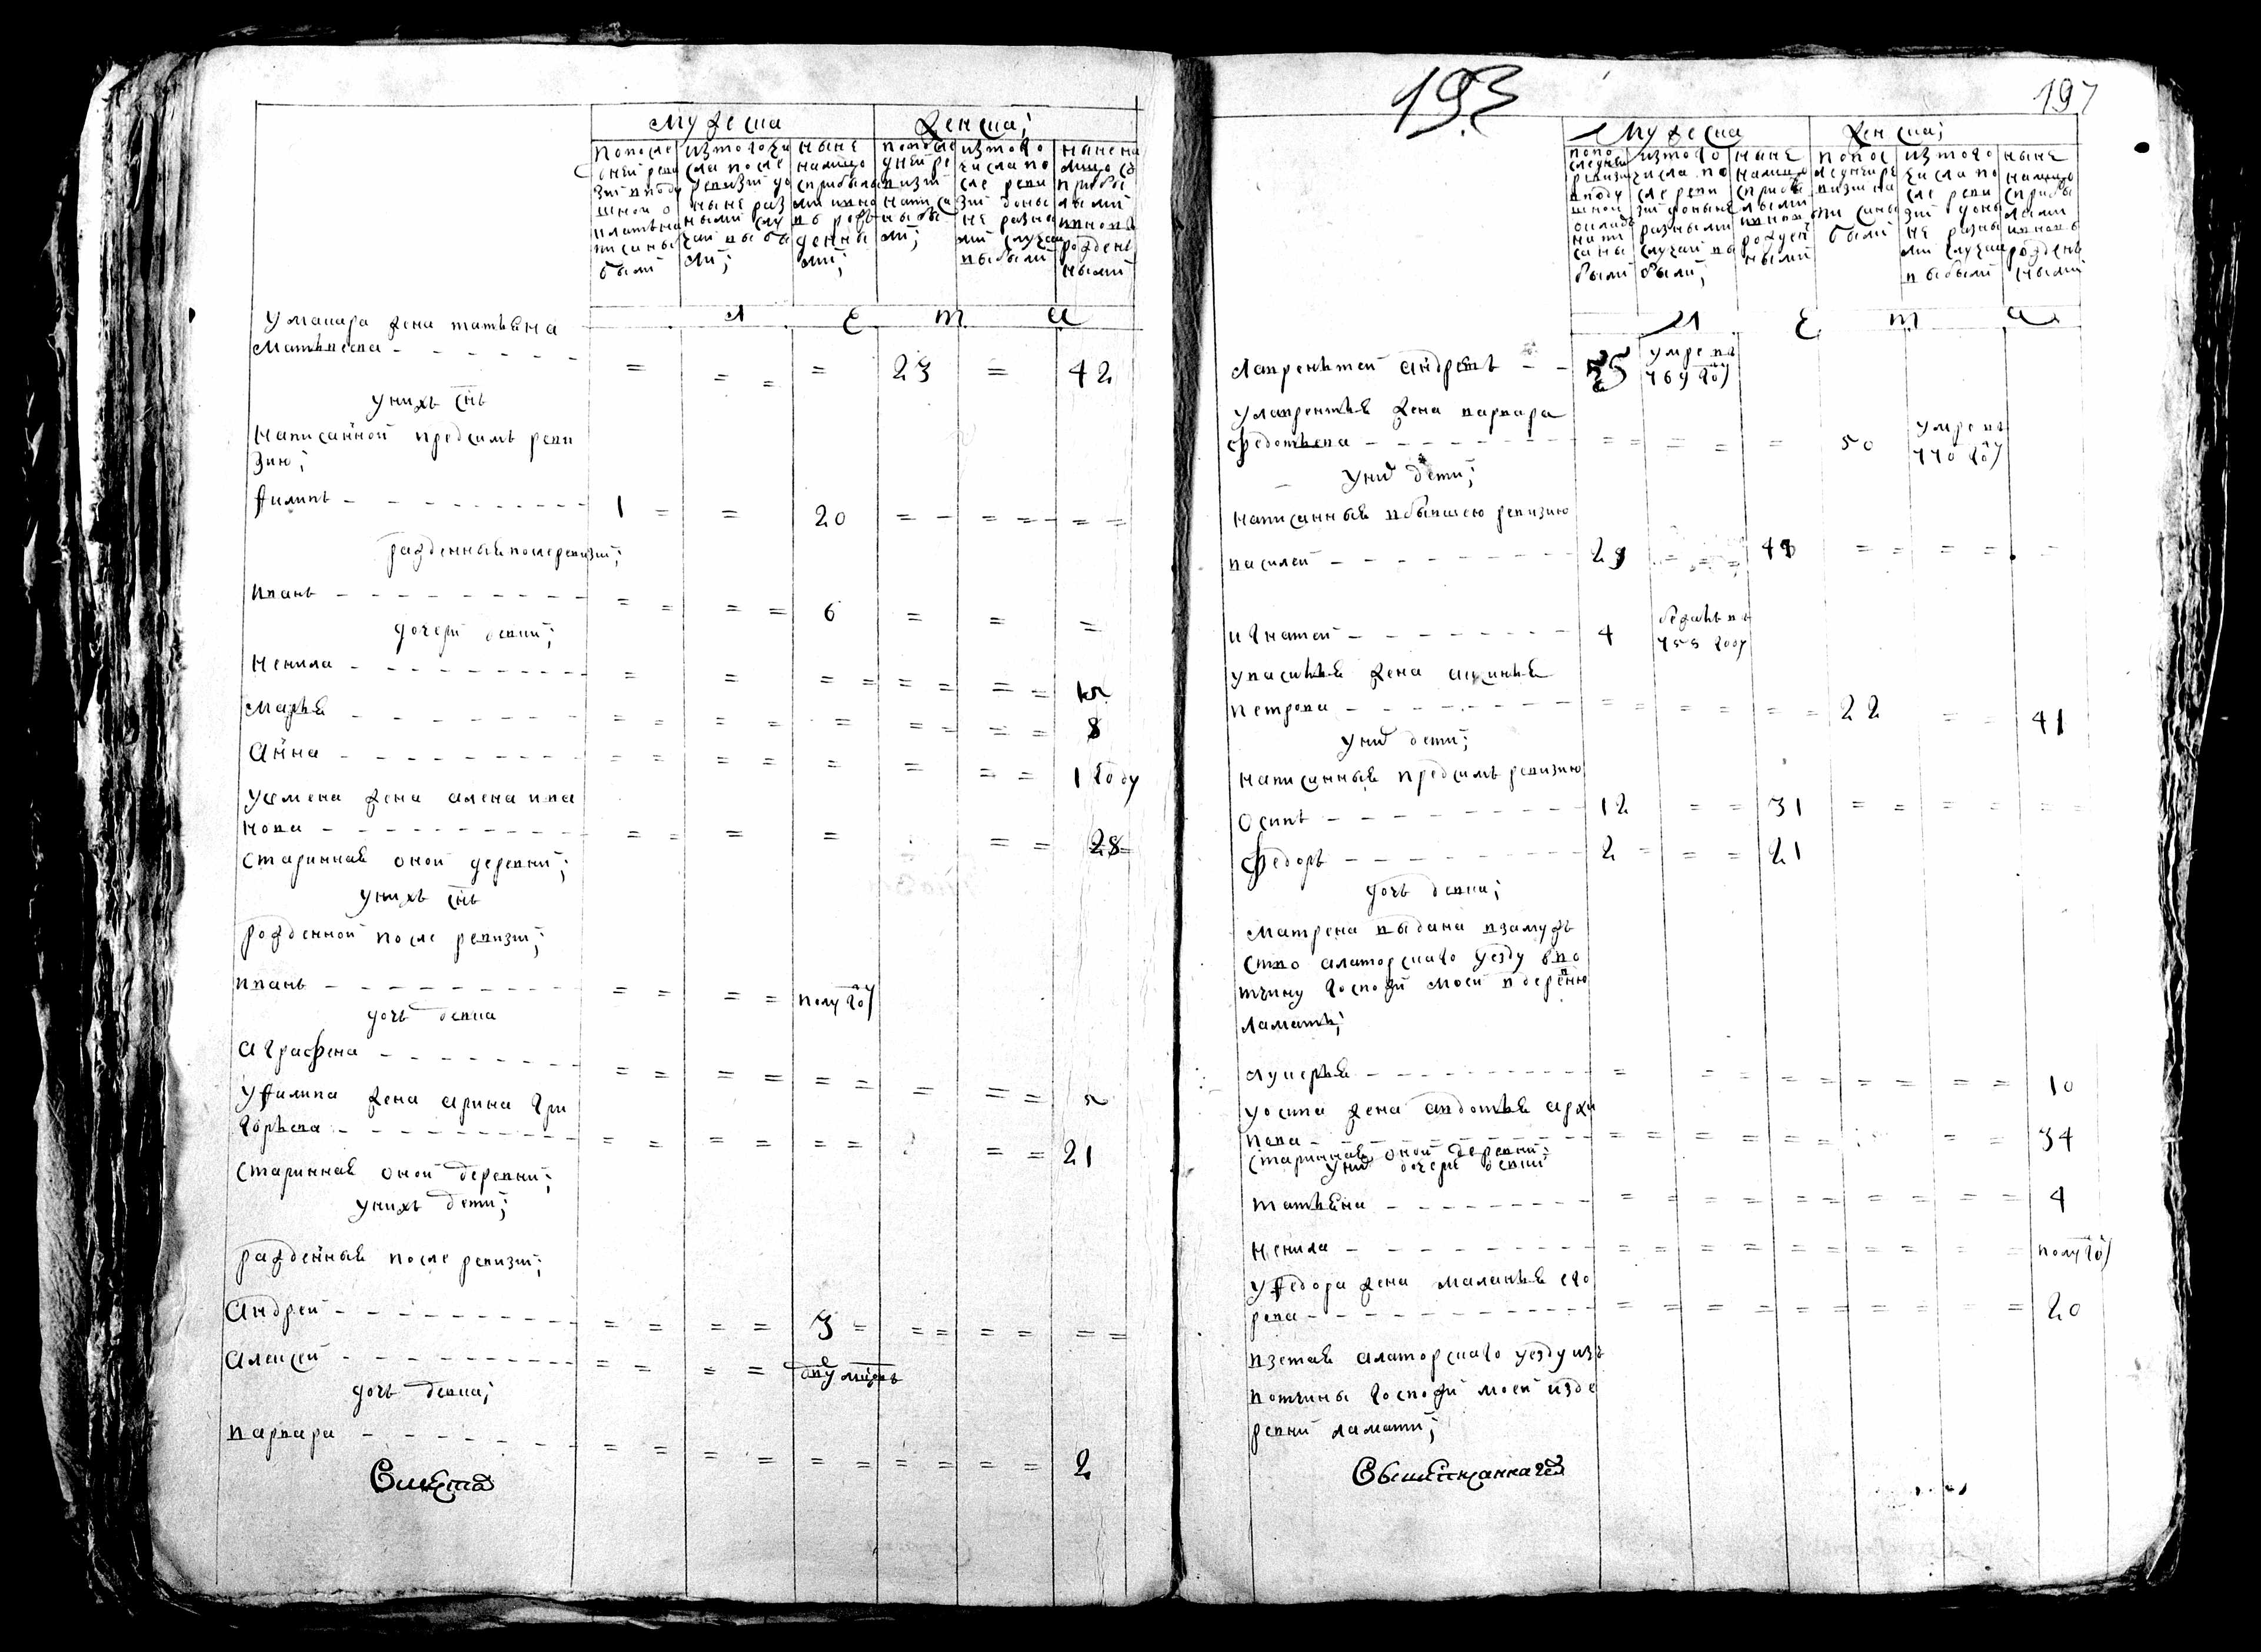 мужеска
женска;
по после
дней реви
зии в поду
шной о
клад на
писаны
были
из того чи
сла после
ревизии до
ныне раз
ными слу
чаи выбы
ли;
ныне
налицо
с прибыл
ми и вно
вь рож
денны
ми;
по после
дней ре
визии
написа
ны бы
ли;
из того
числа по
сле реви
зии доны
не разны
ми случаи
выбыли
ныне на
лицо со
прибы
лыми
и вновь
рожден
ными
л е т а
у макара жена татьяна
матвеева
23
42
у нихъ снъ
написанной пред симъ реви
зию;
филипъ
1
20
рожденныя после ревизии;
иванъ
6
дочери девки;
ненила
15
марья
8
анна
1 году
у семена жена алена ива
нова
28
старинная оной деревни;
у нихъ снъ
рожденной после ревизии;
иванъ
полу году
дочь девка
аграфена
5
у филипа жена арина гри
горьева
21
старинная оной деревни;
у нихъ дети;
рожденныя после ревизии;
андреи
3
алексеи
дву месецъ
дочь девка;
варвара
2
193
197
мужеска
женска;
по по
следней
ревизии
в поду
шной
окладъ
напи
саны
были
из того
числа по
сле реви
зии доныне
разными
случаи вы
были;
ныне
налицо
с прибы
лыми
и вновь
рожден
ными
по пос
ледней ре
визии на
писаны
были
из того
числа по
сле реви
зии доны
не разны
ми случаи
выбыли
ныне
налицо
с прибы
лыми
и вновь
рожден
ными
л е т а
лаврентеи андреевъ
умре въ
769 году
у лаврентья жена варвара
федотьева
50
умре въ
770 году
у них дети;
написанныя в бывшею ревизию
василеи
29
48
игнатеи
4
бежалъ въ
755 году
у василья жена аксинья
петрова
22
41
у них дети;
написанныя пред симъ ревизию
осипъ
12
31
федоръ
2
21
дочь девка;
матрена выдана в замуж
ство алаторскаго уезду в во
тчину госпожи моей в деревню
ламати;
лукерья
10
у осипа жена авдотья архи
пова
34
старинная оной деревни;
у них дочери девки
татьяна
4
ненила
полу году
у федора жена маланья его
рева
20
взетая алаторскаго уезду изъ
вотчины госпожи моей из де
ревни ламати;